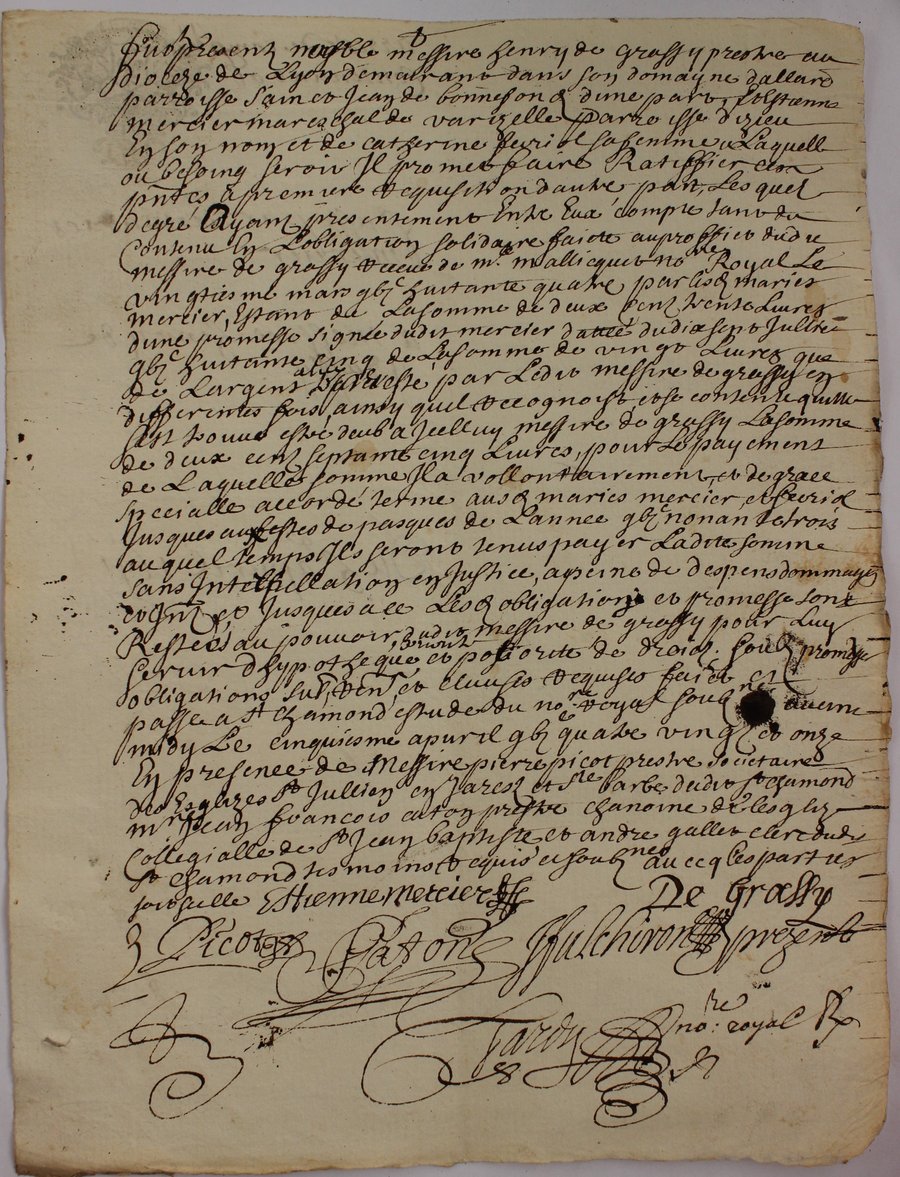 fut present noble messire henry de grassy prestre au
dioceze de Lyon demeurant dans son domayne dallard
parroisse Sainct Jean de bonnefond dune part, et Estienne
mercier mareschal de varizelle parroisse dizieu
En son nom et de catherine feriol sa femme a Laquelle
ou besoing seroit Il promet faire Ratiffier ces
pntes a premiere requisition dautre part, Lesquelz
de gré Ayant presentement Entre Eux compte tant du
Contenu En Lobligation solidaire faicte au proffict dudit
messire de grassy receue de me mallicquet nore Royal Le
vingtiesme mars gbc huitante quatre par lesd mariés
mercier, Estant de La somme de deux cent trente Livres
dune promesse signée dudit mercier dattée du dix sept Juillie
gbc huitante cinq de La somme de vingt Livres que
de Largent a luy preste par Ledit messire de grassy en
differentes fois, ainsy quil recognoist, et se contente quitte
sest trouve estre deub a Icelluy messire de grassy La somme
de deux cent septante cinq Livres, pour Le payement
de Laquelle somme Il a vollontairement et de grace
specialle accordé terme ausd mariés mercier, et feriol
Jusques aux festes de pasques de Lannee gbc nonante trois
auquel temps Ils seront tenus payer Ladite somme
sans Interpellation en Justice, a peine de despens dommages
et Intz et Jusques a ce Lesd obligation et promesse sont
Restées au pouvoir dudit messire de grassy pour Luy
servir dhypotheque et priorité de droict. soubz promesse
obligations subm renon et clauses requises faict et
passé a St chamond estude du nore royal soubne avant
midy Le cinquiesme apvril gbc quatre vingt et onze
En presence de Messire pierre picot prestre societaire
des Esglizes St Jullien en Jarez et Ste barbe dudit St chamond
mre Jean francois caton prestre chanoine de lesglize
Collegialle de St Jean baptiste et andre gallet clerc dudit
St chamond tesmoins requis et soubnes avecq les parties
Estienne mercier
De Grassy
Picot Caton ffulchiron prezent
Tardy nore royal